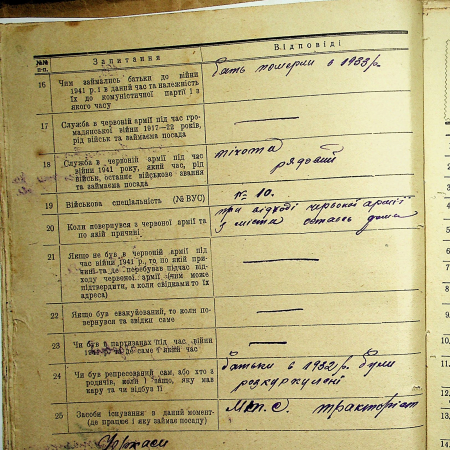 №№
п-п.
Запитання
Відповіді
16
Чим займались батьки до війни
1941 р. і в даний час та належність
їх до комуністичної партії і з
якого часу
батьки померли в 1933 р.
17
Служба в червоній армії під час гро-
мадянської війни 1917—22 років,
рід військ та займаєма посада
18
Служба в червоній армії під час
війни 1941 року, який час, рід
військ, останнє військове звання
та займаєма посада
піхота
рядовий
19
Військова спеціальність (№ ВУС)
№ 10.
20
Коли повернувся з червоної армії та
по якій причині
при відході червоної армії
з міста остався дома
21
Якщо не був в червоній армії під
час війни 1941 р., то по якій при-
чині та де перебував підчас від-
ходу червоної армії (чим може
підтвердити, а коли свідками то їх
адреса)
22
Якщо був евакуйований, то коли по-
вернувся та звідки саме
23
Чи був в партизанах під час війни
1941 р. де саме і який час
24
Чи був репресований сам, або хто з
родичів, коли і защо, яку мав
кару та чи відбув її
батьки в 1932 р. були
розкуркулені
25
Засоби існування в даний момент-
(де працює і яку займає посаду)
М.т.с. тракторіст
10.
11.
12.
13.
14.